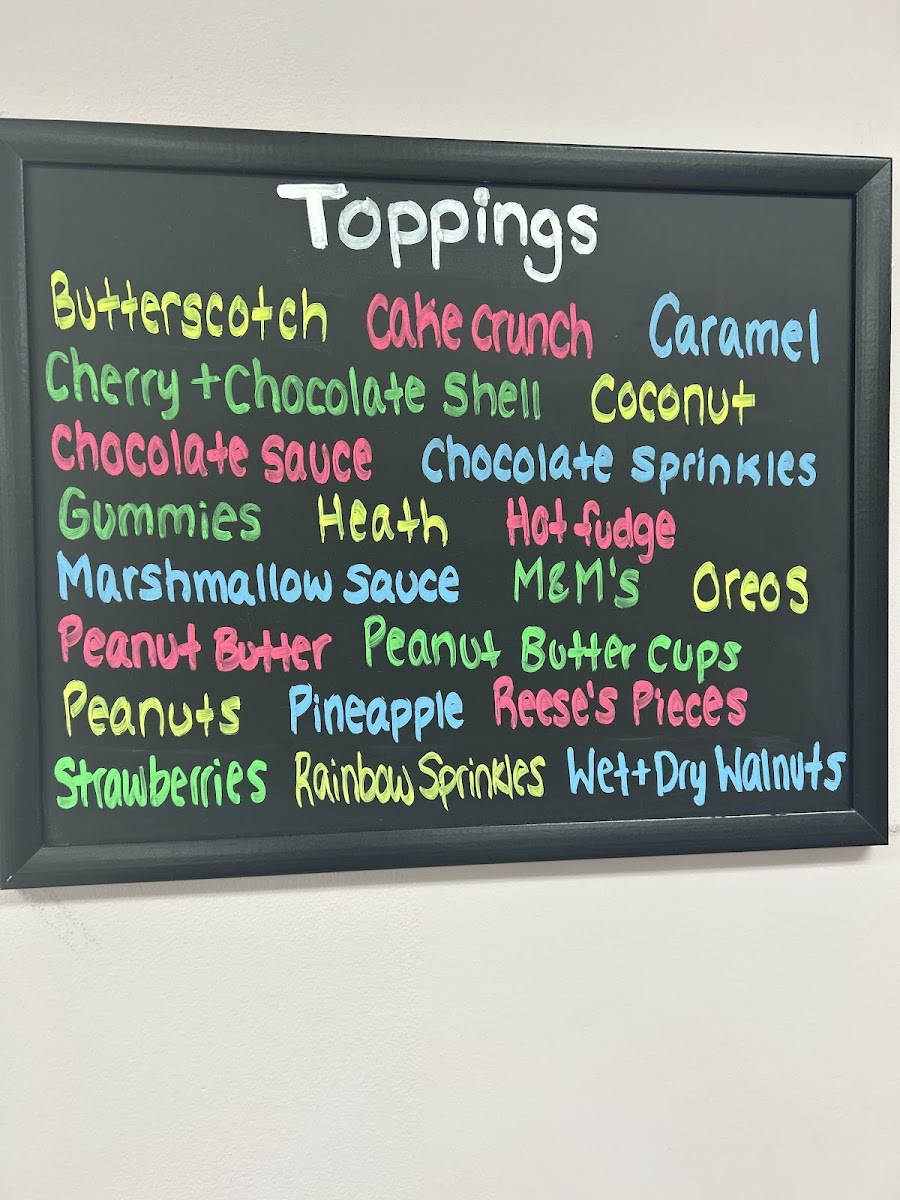 Toppings
Butterscotch Cake crunch Caramel
Cherry + Chocolate Shell Coconut
Chocolate Sauce Chocolate Sprinkles
Gummies Heath Hot fudge
Marshmallow Sauce M&M's Oreos
Peanut Butter Peanut Butter Cups
Peanuts Pineapple Reese's Pieces
Strawberries Rainbow Sprinkles Wet + Dry Walnuts